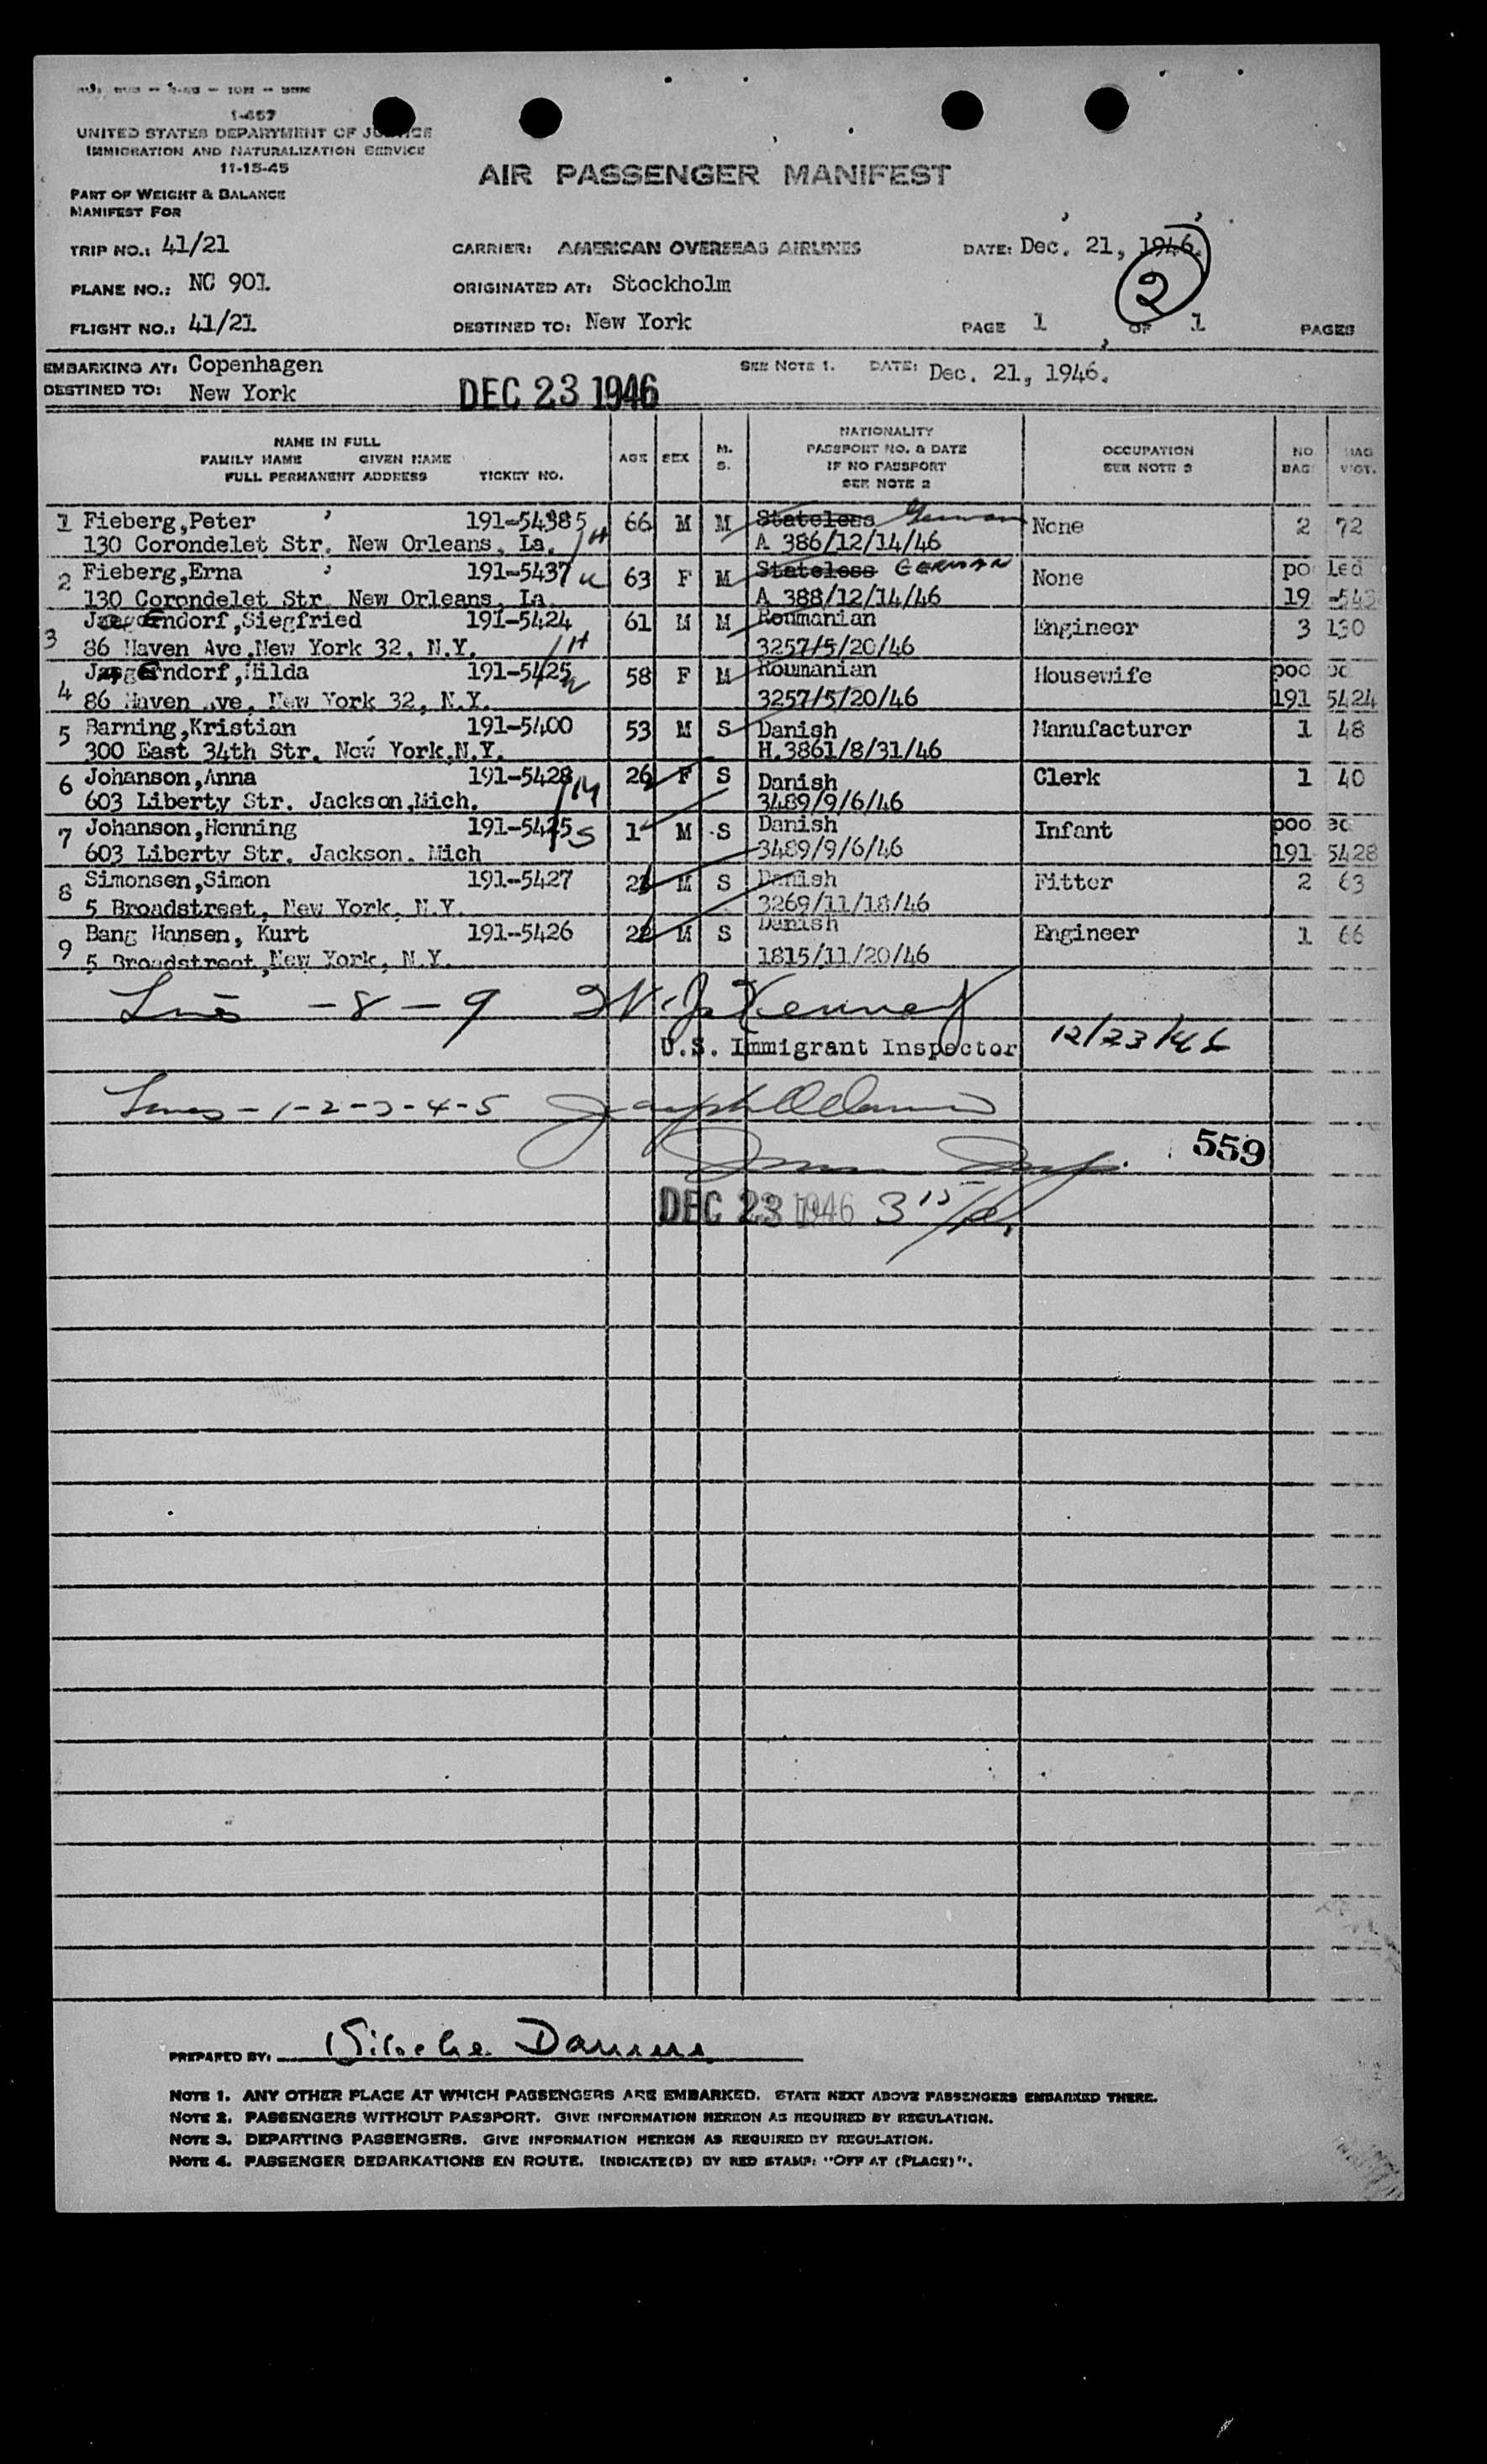 1-457
UNITED STATES DEPARTMENT OF JUSTICE
IMMIGRATION AND NATURALIZATION SERVICE
11-15-45
AIR PASSENGER MANIFEST
PART OF WEIGHT & BALANCE
MANIFEST FOR
TRIP NO.: 41/21 CARRIER: AMERICAN OVERSEAS AIRLINES DATE: Dec. 21, 1946.
2
PLANE NO.: NC 901 ORIGINATED AT: Stockholm
FLIGHT NO.: 41/21 DESTINED TO: New York PAGE 1 OF 1 PAGES
EMBARKING AT: Copenhagen SEE NOTE 1. DATE: Dec. 21, 1946.
DESTINED TO: New York DEC 23 1946
NAME IN FULL
FAMILY NAME GIVEN NAME
FULL PERMANENT ADDRESS TICKET NO. AGE SEX M. S. NATIONALITY PASSPORT NO. & DATE IF NO PASSPORT SEE NOTE 2 OCCUPATION SEE NOTE 3 NO BAG BAG WGT.
1 Fieberg,Peter 191-54385 66 M M Stateless German None 2 72
130 Corondelet Str. New Orleans, La. H A 386/12/14/46
2 Fieberg,Erna 191-5437 63 F M Stateless GERMAN None po led
130 Corondelet Str. New Orleans, La. A 388/12/14/46 19 -543
3 Jagendorf,Siegfried 191-5424 61 M M Roumanian Engineer 3 130
86 Haven Ave.New York 32, N.Y. H 3257/5/20/46
4 Jagendorf,Hilda 191-5425 58 F M Roumanian Housewife poo
86 Haven Ave, New York 32, N.Y. 3257/5/20/46 191 5424
5 Barning,Kristian 191-5400 53 M S Danish Manufacturer 1 48
300 East 34th Str. New York,N.Y. H.3861/8/31/46
6 Johanson,Anna 191-5428 26 F S Danish Clerk 1 40
603 Liberty Str. Jackson,Mich. M 3489/9/6/46
7 Johanson,Henning 191-5425 1 M S Danish Infant poo
603 Liberty Str. Jackson. Mich S 3489/9/6/46 191 5428
8 Simonsen,Simon 191-5427 M S Danish Fitter 2 63
5 Broadstreet, New York, N.Y. 3269/11/18/46
9 Bang Hansen, Kurt 191-5426 22 M S Danish Engineer 1 66
5 Broadstreet,New York, N.Y. 1815/11/20/46
-8-9 Kenney
U.S. Immigrant Inspector 12/23/46
Lines-1-2-3-4-5 Joseph
Insp. 559
DEC 23 1946 3 15/
PREPARED BY:
NOTE 1. ANY OTHER PLACE AT WHICH PASSENGERS ARE EMBARKED. STATE NEXT ABOVE PASSENGERS EMBARKED THERE.
NOTE 2. PASSENGERS WITHOUT PASSPORT. GIVE INFORMATION HEREON AS REQUIRED BY REGULATION.
NOTE 3. DEPARTING PASSENGERS. GIVE INFORMATION HEREON AS REQUIRED BY REGULATION.
NOTE 4. PASSENGER DEBARKATIONS EN ROUTE. INDICATE(D) BY RED STAMP: "OFF AT (PLACE)".